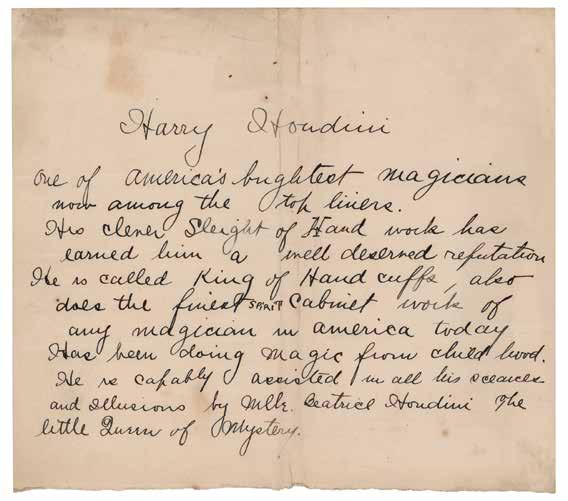 Harry Houdini
one of america's brightest magicians
now among the top liners.
His clever Sleight of Hand work has
earned him a well deserved reputation
He is called King of Hand cuffs, also
does the finest SPIRIT Cabinet work of
any magician in america today
Has been doing magic from child hood.
He is capably assisted in all his sceances
and Illusions by Mlle. Beatrice Houdini The
little Queen of Mystery.